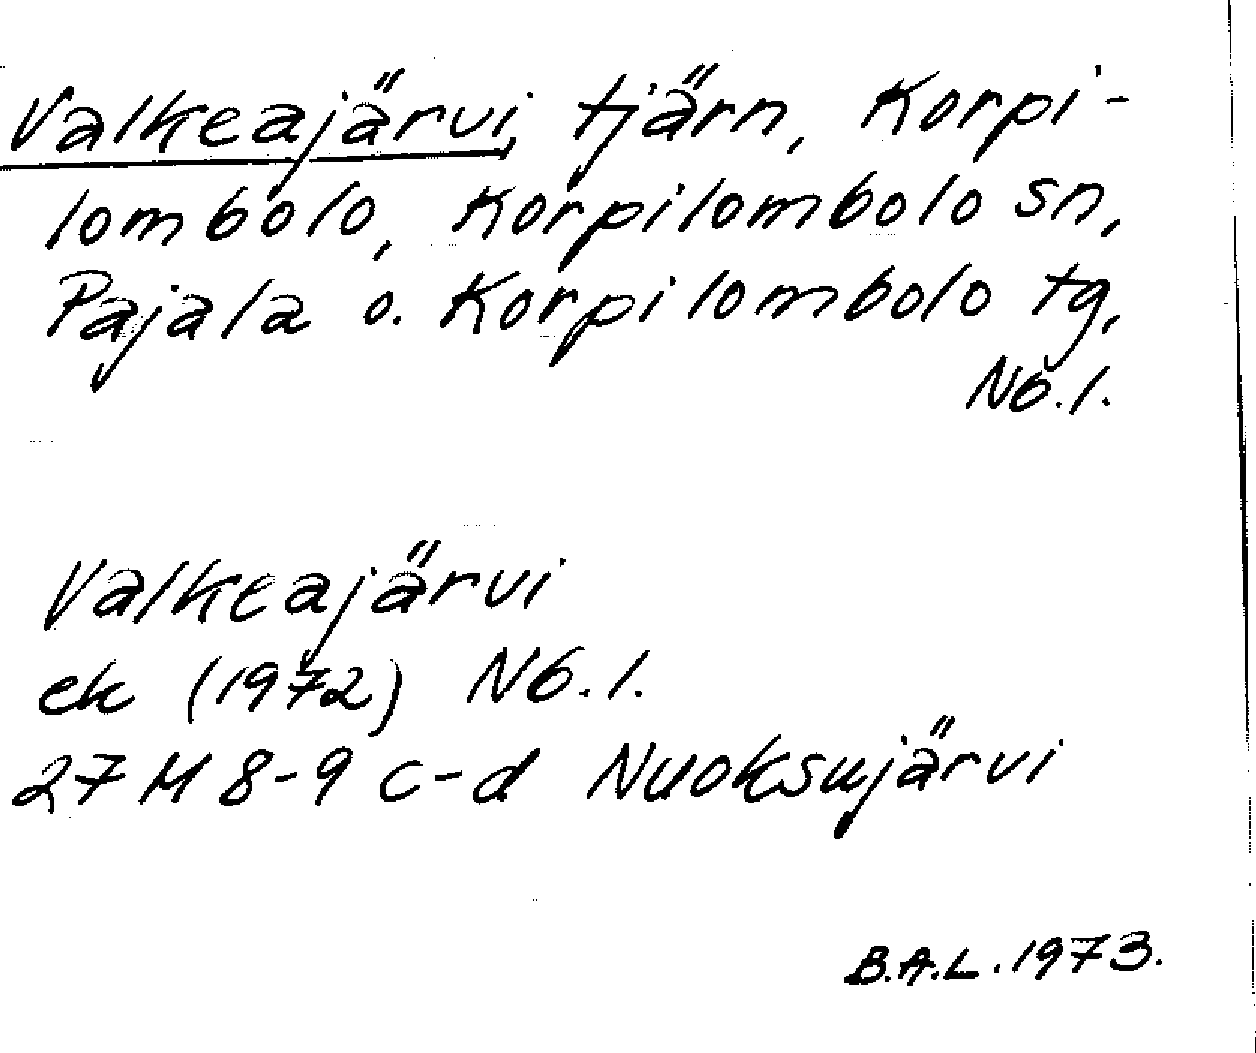 Valkeajärvi, tjärn, Korpi-
lombolo, Korpilombolo sn,
Pajala o. Korpilombolo tg,
Nb.l.
Valkeajärvi
ek (1972) Nb.l.
27 M 8-9 c-d Nuoksujärvi
B.A.L. 1973.